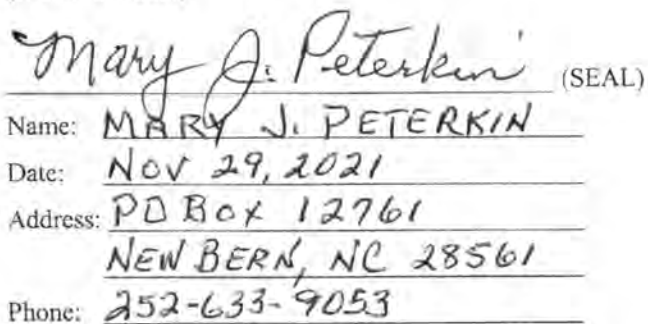 Mary J. Peterkin (SEAL)
Name: MARY J. PETERKIN
Date: NOV 29, 2021
Address: PO BOX 12761
NEW BERN, NC 28561
Phone: 252-633-9053